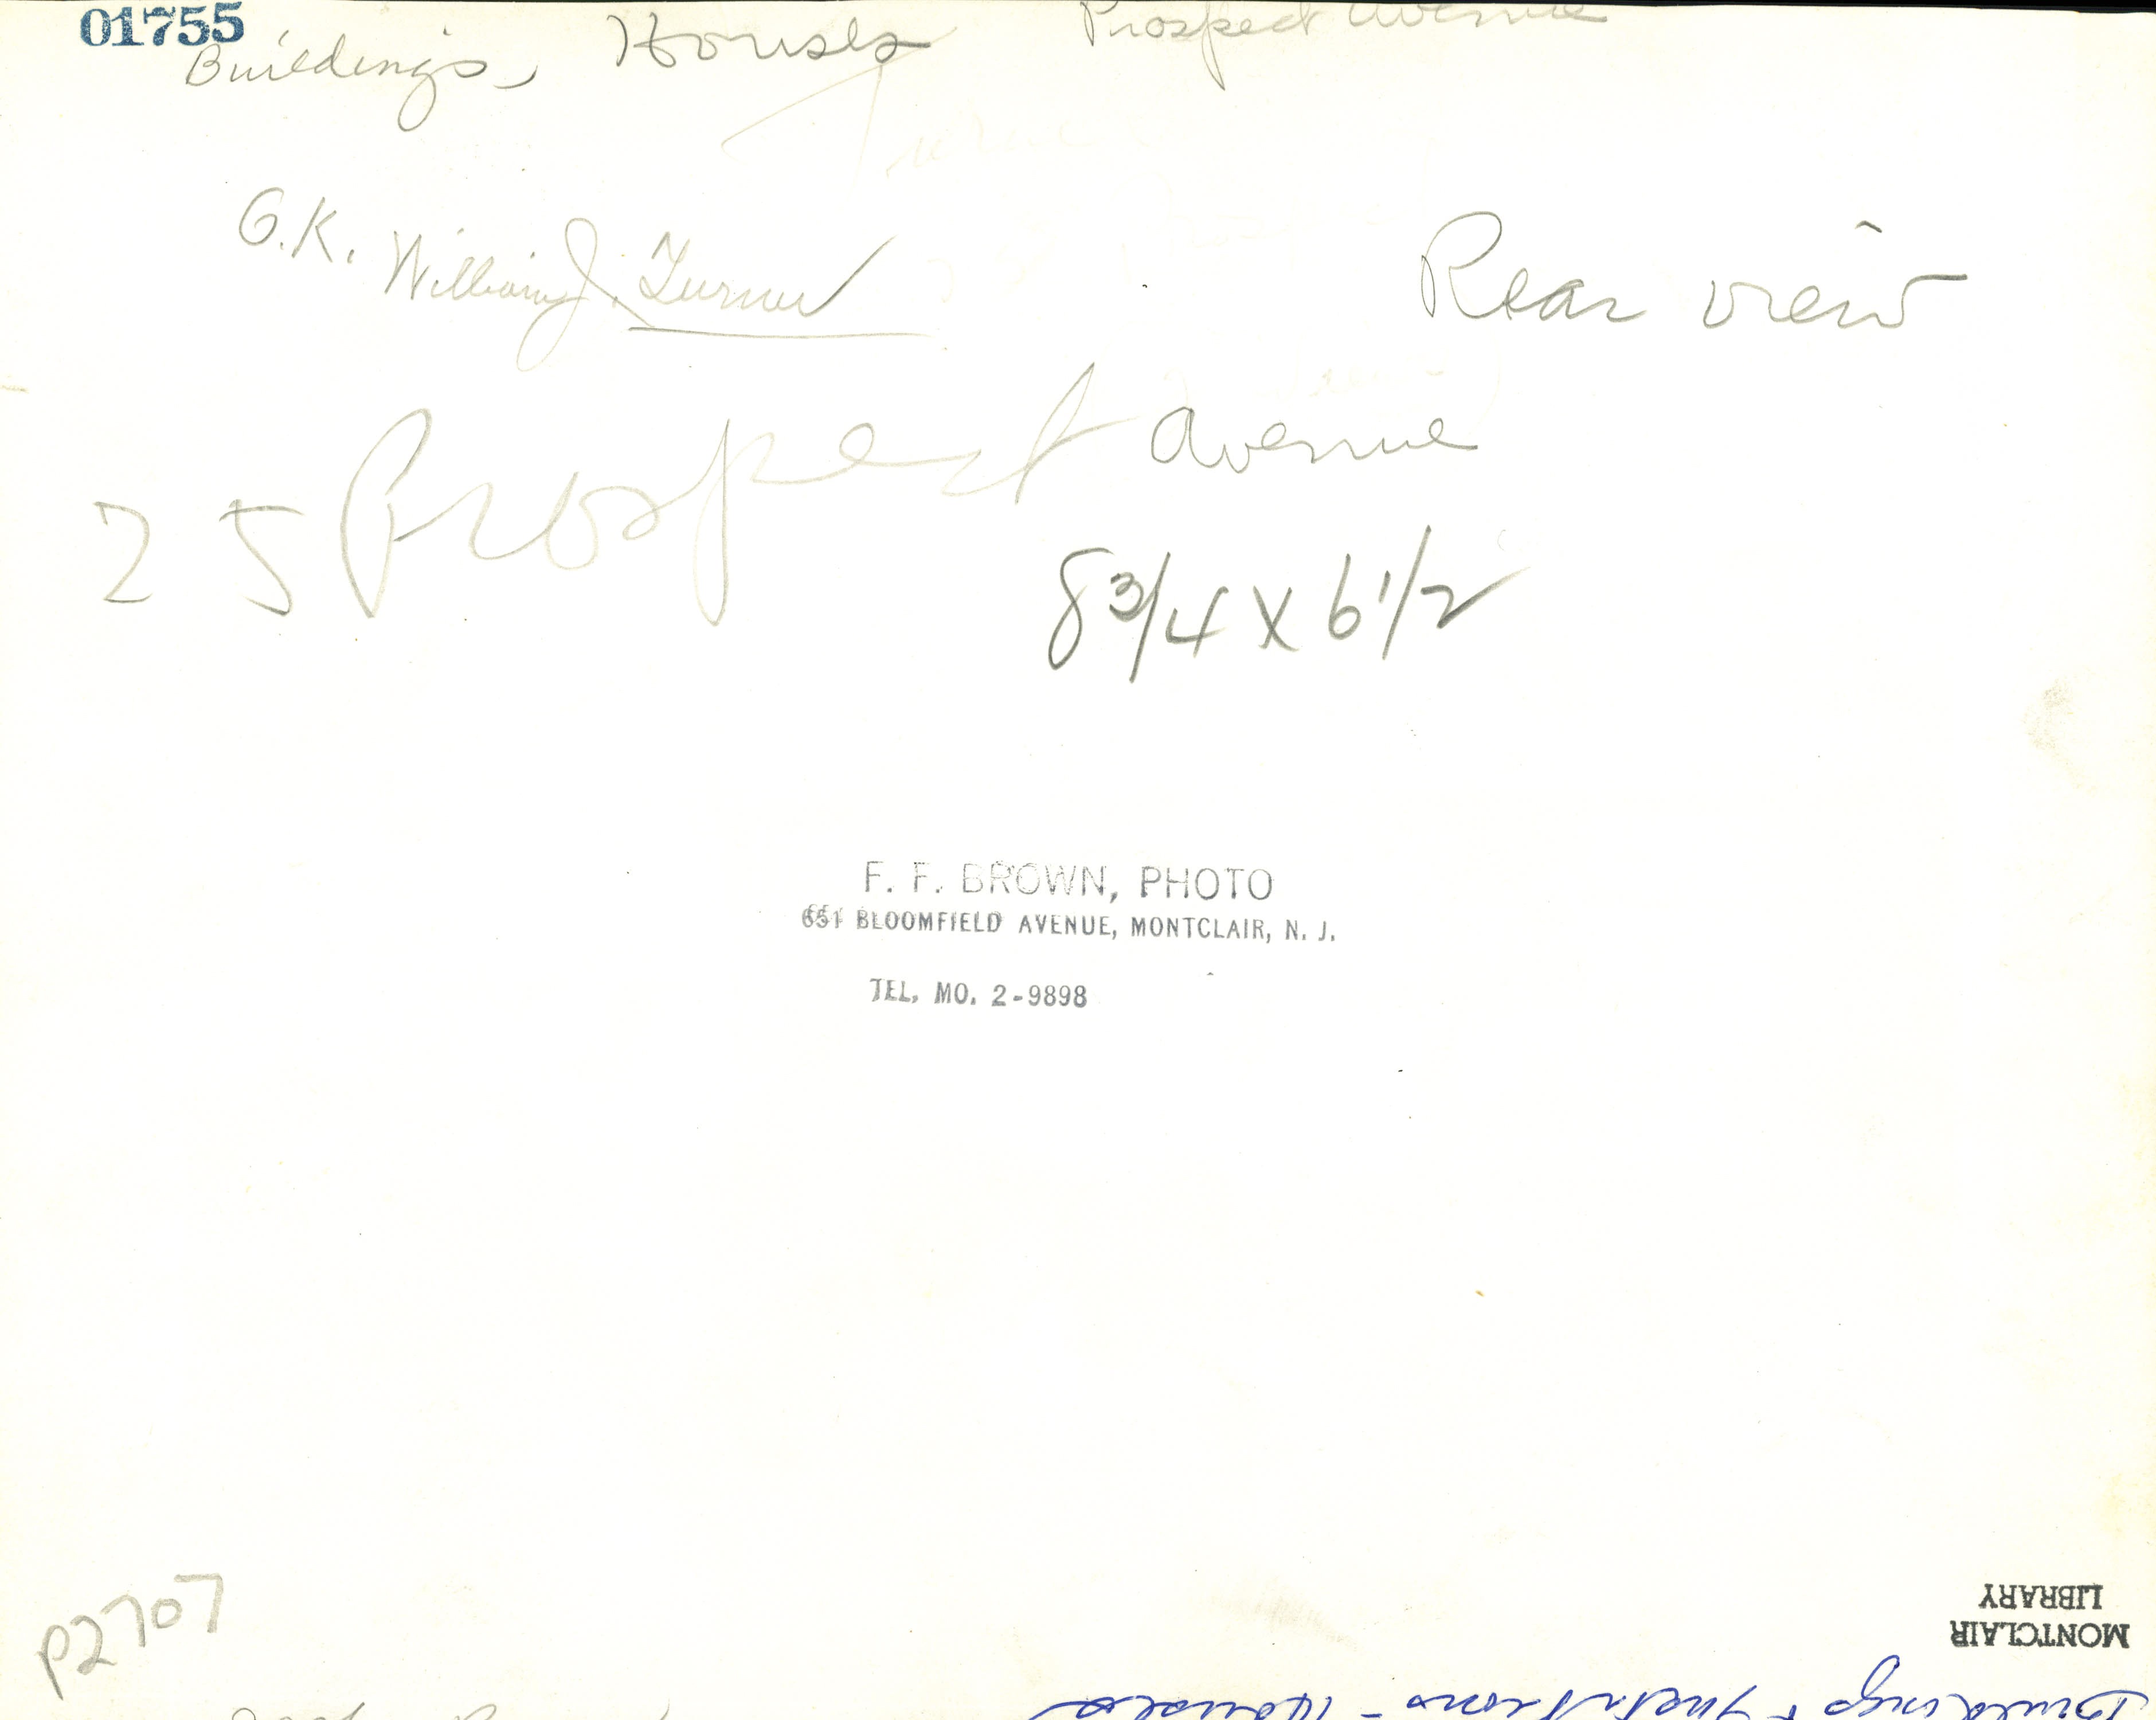 01755
Buildings, Houses Prospect Avenue
O.K. William J. Turner
Rear view
25 Prospect Avenue
8 3/4 X 6 1/2
F. F. BROWN, PHOTO
651 BLOOMFIELD AVENUE, MONTCLAIR, N. J.
TEL. MO. 2-9898
P2707
MONTCLAIR
LIBRARY
Buildings + Institutions - Houses